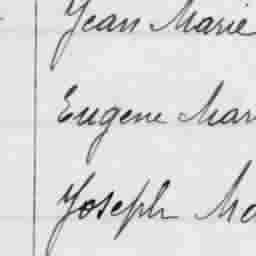 Jean Marie
Eugene Mar
Joseph Ma